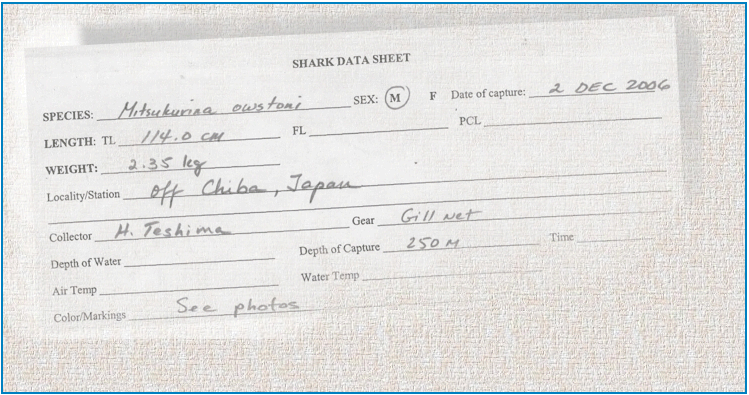 SHARK DATA SHEET
SPECIES: Mitsukurina owstoni SEX: M F Date of capture: 2 DEC 2006
LENGTH: TL 114.0 cm FL PCL
WEIGHT: 2.35 kg
Locality/Station off Chiba, Japan
Collector H. Teshima Gear Gill net
Depth of Water Depth of Capture 250 m Time
Air Temp Water Temp
Color/Markings See photos